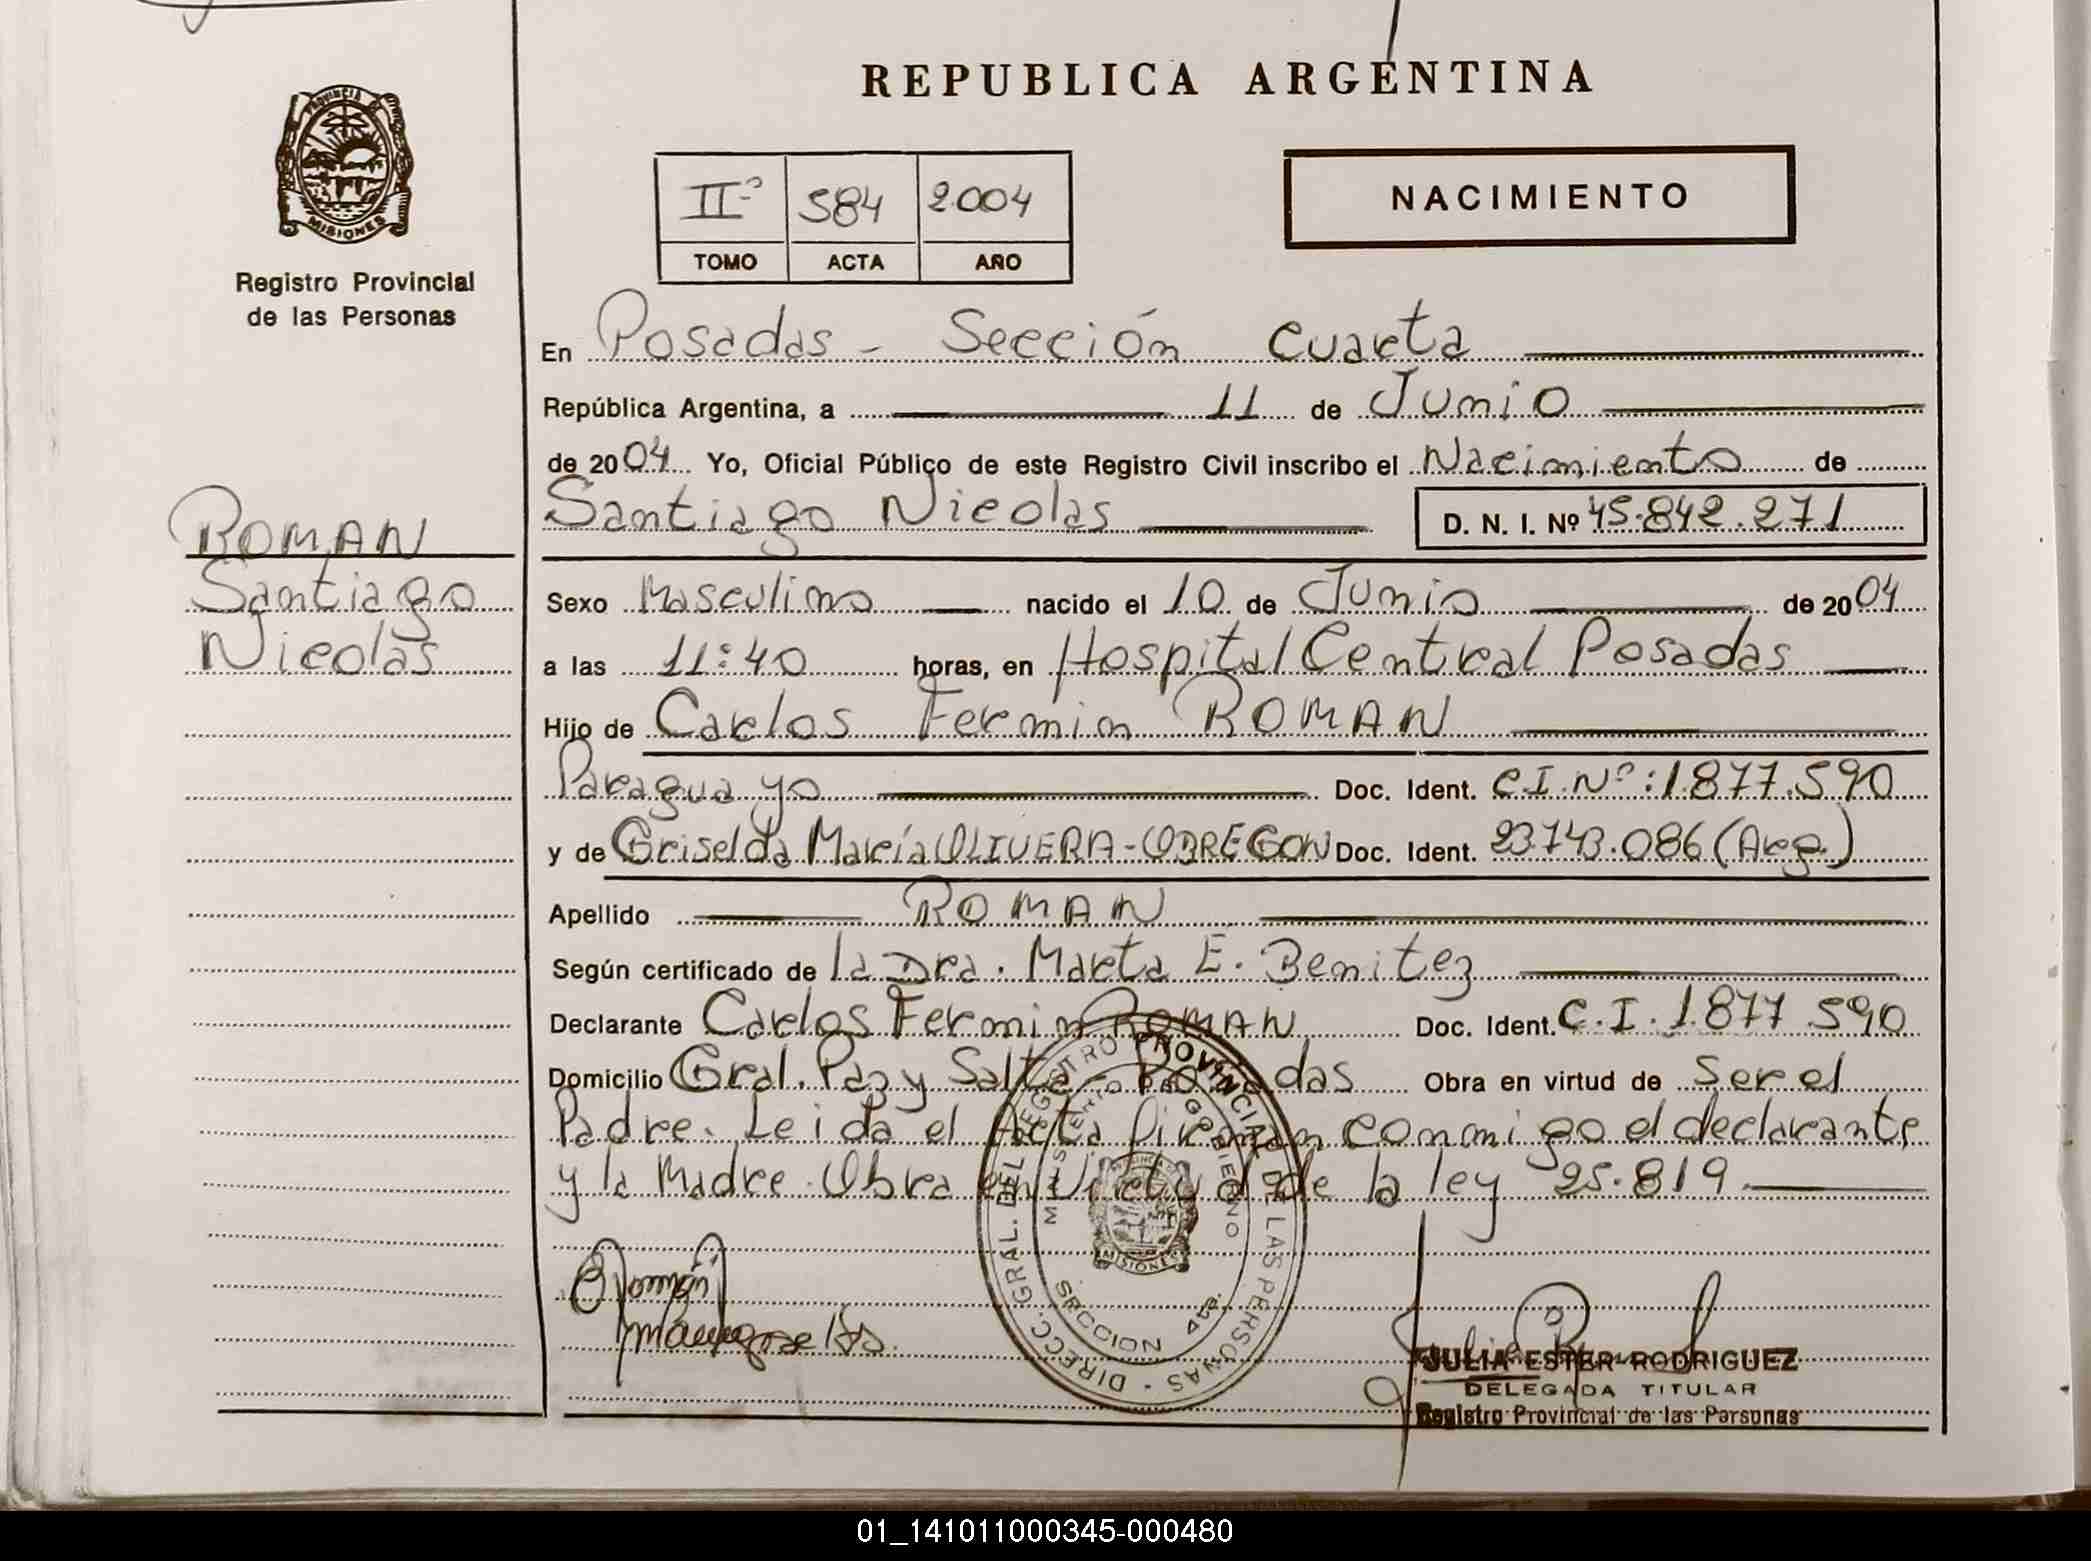 REPUBLICA ARGENTINA
PROVINCIA
MISIONES
Registro Provincial
de las Personas
IIº 584 2.004
TOMO ACTA AÑO
NACIMIENTO
En Posadas - Sección Cuarta
República Argentina, a 11 de Junio
de 2004 Yo, Oficial Público de este Registro Civil inscribo el Nacimiento de
Santiago Nicolas D. N. I. Nº 45.842.271
ROMAN
Santiago
Nicolas
Sexo Masculino nacido el 10 de Junio de 2004
a las 11:40 horas, en Hospital Central Posadas
Hijo de Carlos Fermin ROMAN
Paraguayo Doc. Ident. C.I. Nº: 1.877.590
y de Griselda María OLIVERA-OBREGON Doc. Ident. 23.743.086 (Arg.)
Apellido ROMAN
Según certificado de la Dra. Marta E. Benitez
Declarante Carlos Fermin ROMAN Doc. Ident. C.I. 1.877.590
Domicilio Gral. Paz y Salta - Posadas Obra en virtud de Ser el
Padre. Leida el Acta Firman conmigo el declarante
y la Madre. Obra en Virtud de la ley 25.819.
DIRECC. GRAL. DEL REGISTRO PROVINCIAL DE LAS PERSONAS
MINISTERIO DE GOBIERNO
MISIONES
SECCION 4ta.
JULIA ESTER RODRIGUEZ
DELEGADA TITULAR
Registro Provincial de las Personas
01_141011000345-000480